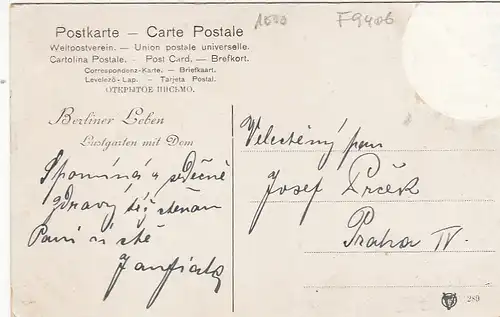 1500
F9406
Postkarte — Carte Postale
Weltpostverein. — Union postale universelle.
Cartolina Postale. - Post Card. — Brefkort.
Correspondenz-Karte. — Briefkaart.
Levelező-Lap. — Tarjeta Postal.
ОТКРЫТОЕ ПИСЬМО.
Berliner Leben
Lustgarten mit Dom
Spomíná a srdečné
zdravy též
Paní
Velectěný pan
Josef Prček
Praha IV.
289